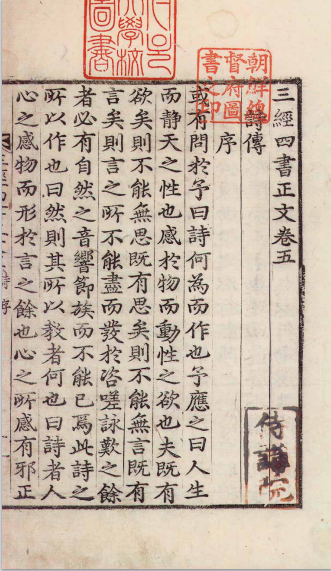 大學校
圖書
朝鮮總
督府圖
書之印
三經四書正文卷五
詩傳
序
或有問於予曰詩何為而作也予應之曰人生
而静天之性也感於物而動性之欲也夫既有
欲矣則不能無思既有思矣則不能無言既有
言矣則言之所不能盡而發於咨嗟詠歎之餘
者必有自然之音響節族而不能已焉此詩之
所以作也曰然則其所以敎者何也曰詩者人
心之感物而形於言之餘也心之所感有邪正
侍講院